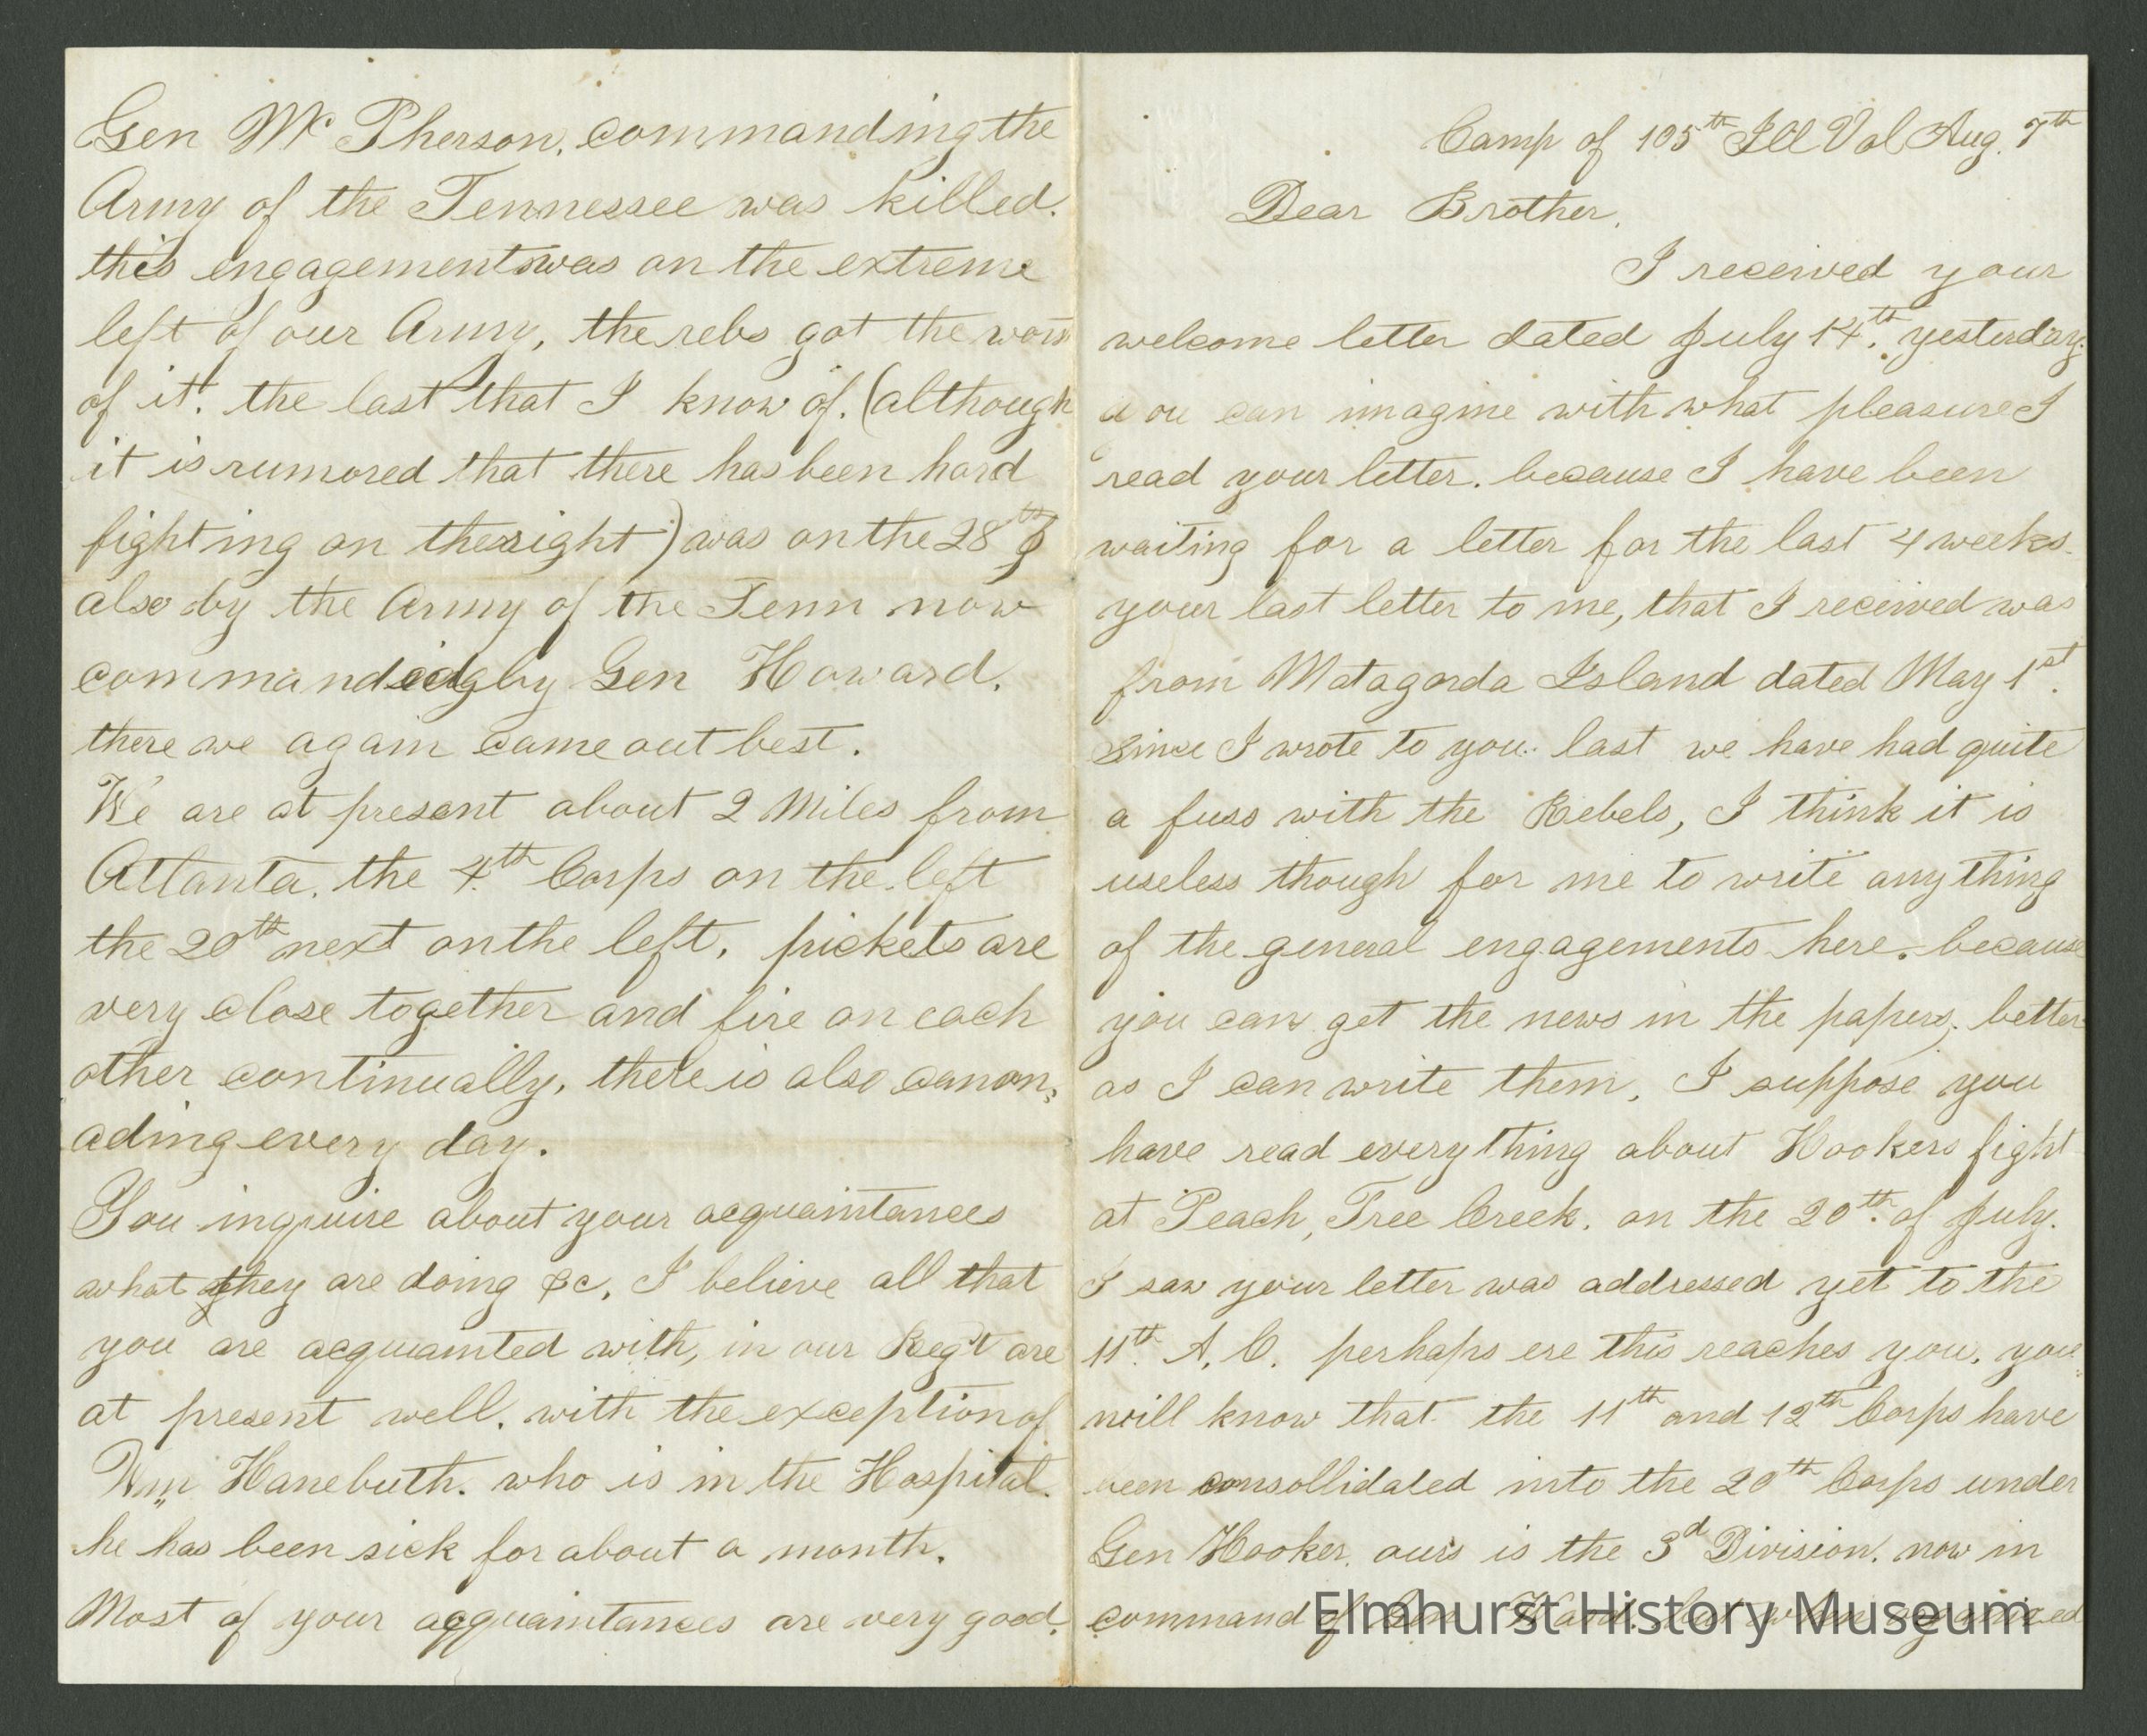 Camp of 105th Ill Vol Aug. 7th
Dear Brother,
I received your
welcome letter dated July 14th. yesterday.
you can imagine with what pleasure I
read your letter. because I have been
waiting for a letter for the last 4 weeks.
your last letter to me, that I received was
from Matagorda Island dated May 1st.
Since I wrote to you last we have had quite
a fuss with the Rebels, I think it is
useless though for me to write anything
of the general engagements here. because
you can get the news in the papers, better
as I can write them, I suppose you
have read everything about Hookers fight
at Peach, Tree Creek. on the 20th. of July.
I saw your letter was addressed yet to the
11th. A. C. perhaps ere this reaches you, you
will know that the 11th and 12th Corps have
been consollidated into the 20th Corps under
Gen Hooker. ours is the 3d Division. now in
command of Gen Ward. but when organized
Gen Mc Pherson, commanding the
Army of the Tennessee was killed.
this engagement was on the extreme
left of our Army, the rebs got the worst
of it. the last that I know of. (although
it is rumored that there has been hard
fighting on the right) was on the 28th
also by the Army of the Tenn now
commanded by Gen Howard.
there we again came out best.
We are at present about 2 Miles from
Atlanta. the 4th Corps on the left
the 20th next on the left, pickets are
very close together and fire on each
other continually, there is also canon,
ading every day.
You inquire about your acquaintances
what they are doing &c, I believe all that
you are acquainted with, in our Reg't are
at present well. with the exception of
Wm Hanebuth. who is in the Hospital.
he has been sick for about a month.
Most of your acquaintances are very good.
Elmhurst History Museum